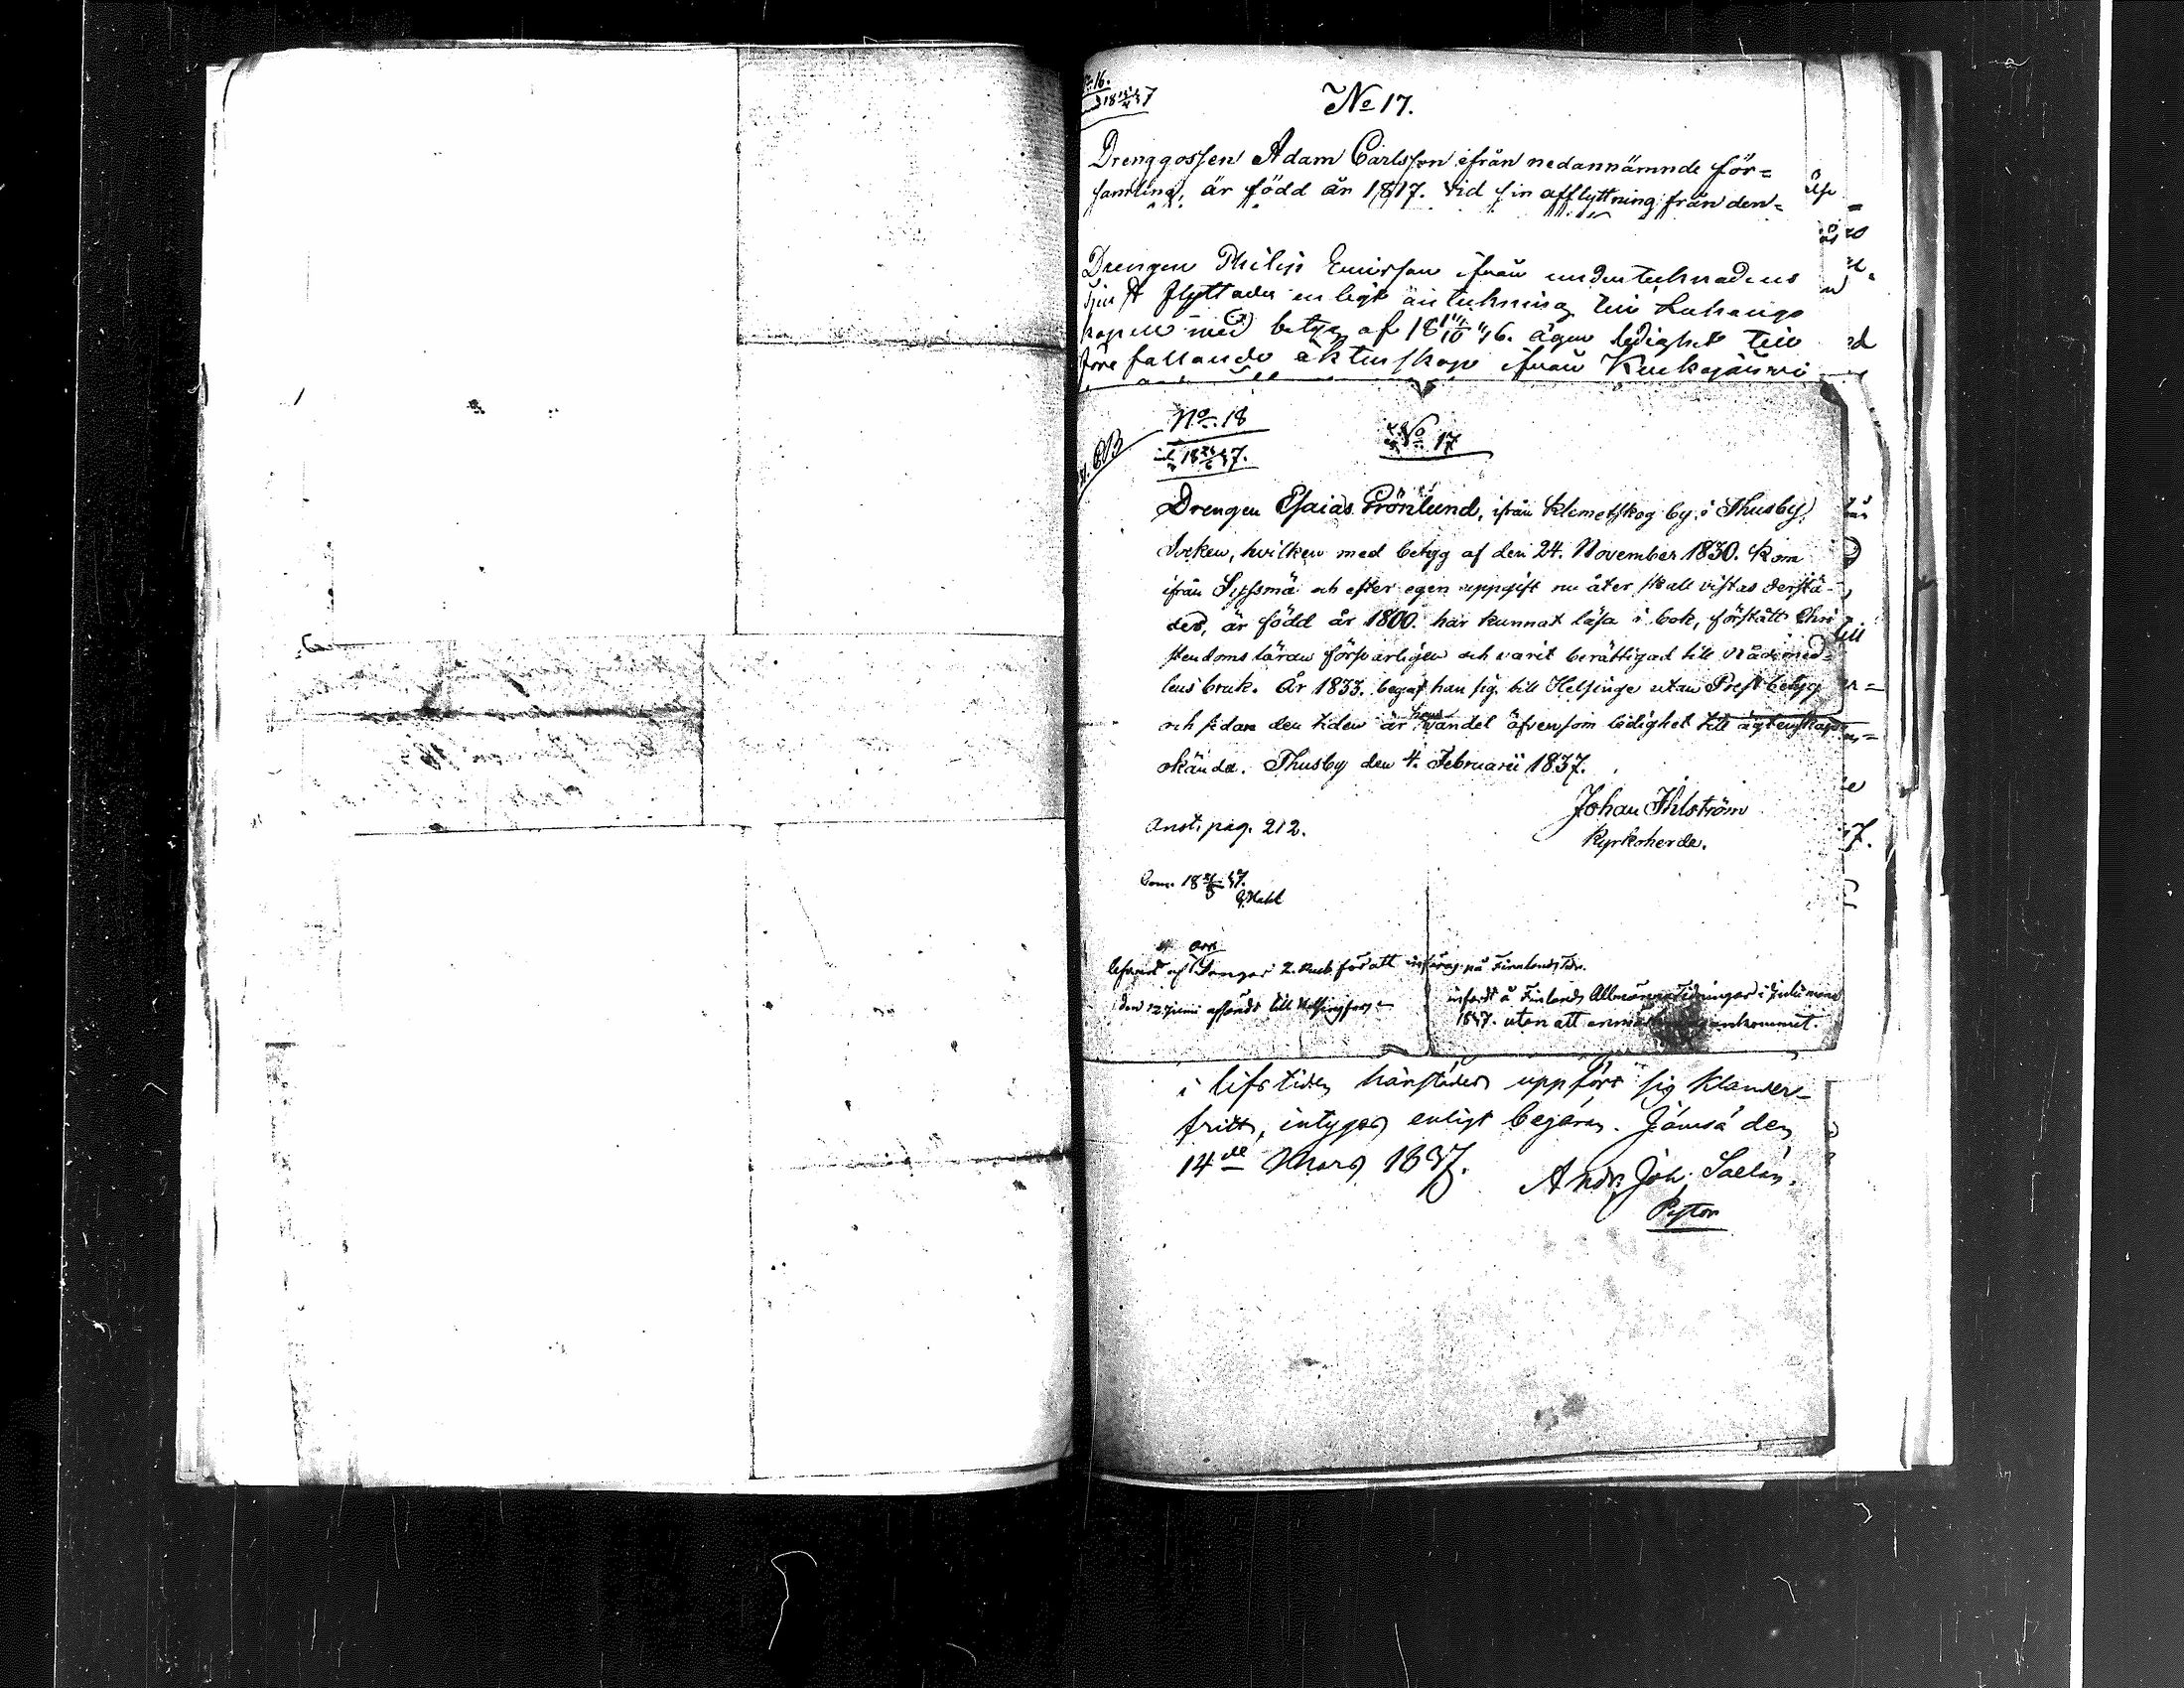 No 16.
No 17.
Drenggossen Adam Carlsson ifrån nedannämnde för=
samling, är född år 1817. vid sin afflyttning från den=
Drengen Philip Ericsson ifrån undertecknadens
flyttades enligt anteckning till Luhango
kapell med betyg af 18 11/10 46. äger ledighet till
förefallande äktenskap ifrån Kuckojärvi
No. 18
No 17
Drengen Esaias Grönlund, ifrån Klemetskog by i Thusby
Socken, hvilken med betyg af den 24. November 1830. kom
ifrån Syssmä och efter egen uppgift nu åter skall vistas derstä-
des, är född år 1800. har kunnat läsa i bok, förstått Chri
stendoms läran försvarligen och varit berättigad till Nådemed=
lens bruk. År 1833. begaf han sig till Helsinge utan Prestbetyg
och sedan den tiden är hans vandel äfvensom ledighet till ägtenskap
okända. Thusby den 4. Februarii 1837.
Johan Ihlström
Kyrkoherde.
Anst. pag. 212.
införas på Finlands Tidn.
den 12 Junii afsändt till Helsingfors
infördt å Finlands Allmänna Tidningar i Julii månad
1847. utan att ankommit.
i lifstiden härstädes uppfört sig klander-
fritt, intygas enligt begäran. Jämsä den
14de Mars 1837.
Andr. Joh. Sallén.
Pastor